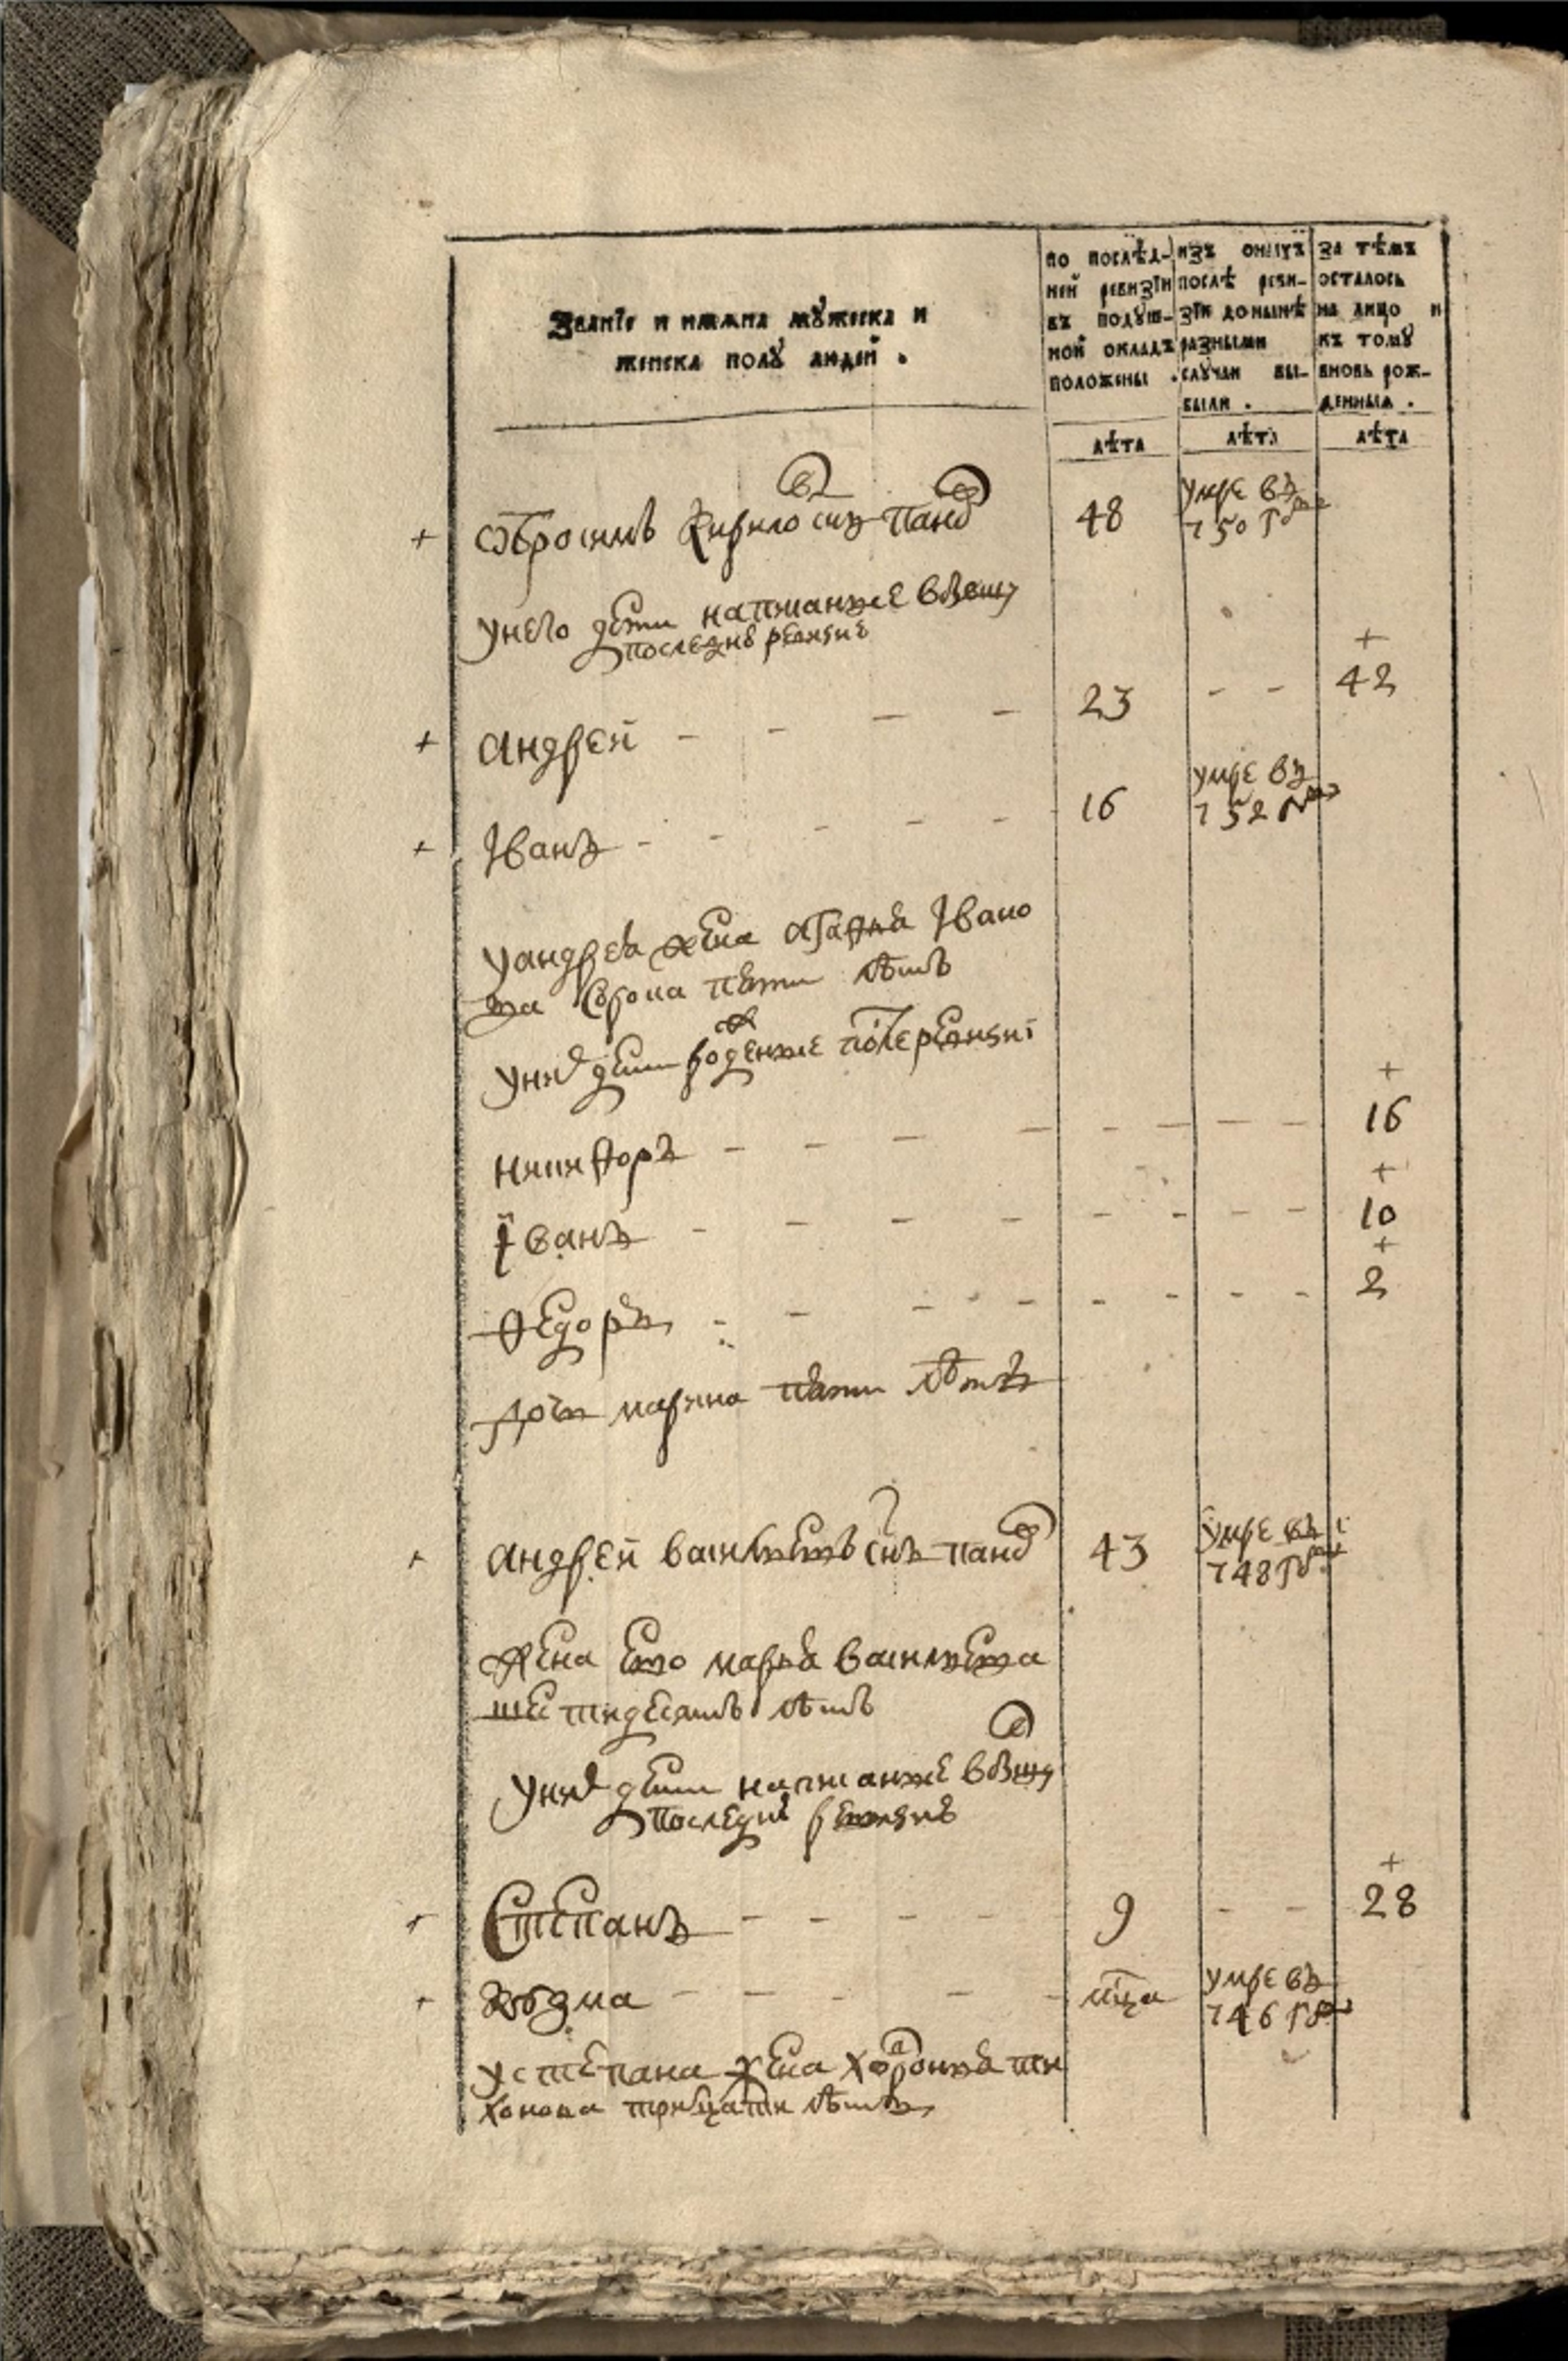 Званїе и имѧна мꙋжеска и
женска полꙋ людей .
по послѣд-
ней ревизїи
въ подꙋш-
ной окладъ
положены .
изъ оныхъ
послѣ реви-
зїи донынѣ
разными
слꙋчаи вы-
были .
за тѣмъ
осталось
на лицо и
къ томꙋ
вновь рож-
денныя .
лѣта
лѣта
лѣта
+ Ѿбросимъ Кирилов снъ
48
умре въ
750 году
у него дети написанные в
последне ревизие
+ андрей - - - -
23 - -
+
42
+ Їванъ - - - - -
16
умре въ
752 году
у андрея жена агафья Ївано
ва сорока пяти лѣтъ
у них дети рожденные после ревизиї
никифоръ - - - - - - - -
+
16
їванъ - - - - - - - -
+
10
федоръ - - - - - - - -
+
2
дочь марина пяти лѣтъ
+ андрей васильевъ снъ
43
умре въ
748 году
жена ево марья васильева
шестидесятъ лѣтъ
у них дети написанные в
последне ревизие
+ Степанъ - - - -
9 - -
+
28
+ козма - - - - -
мца
умре въ
746 году
у степана жена хавронья ти
хонова трицати лѣтъ